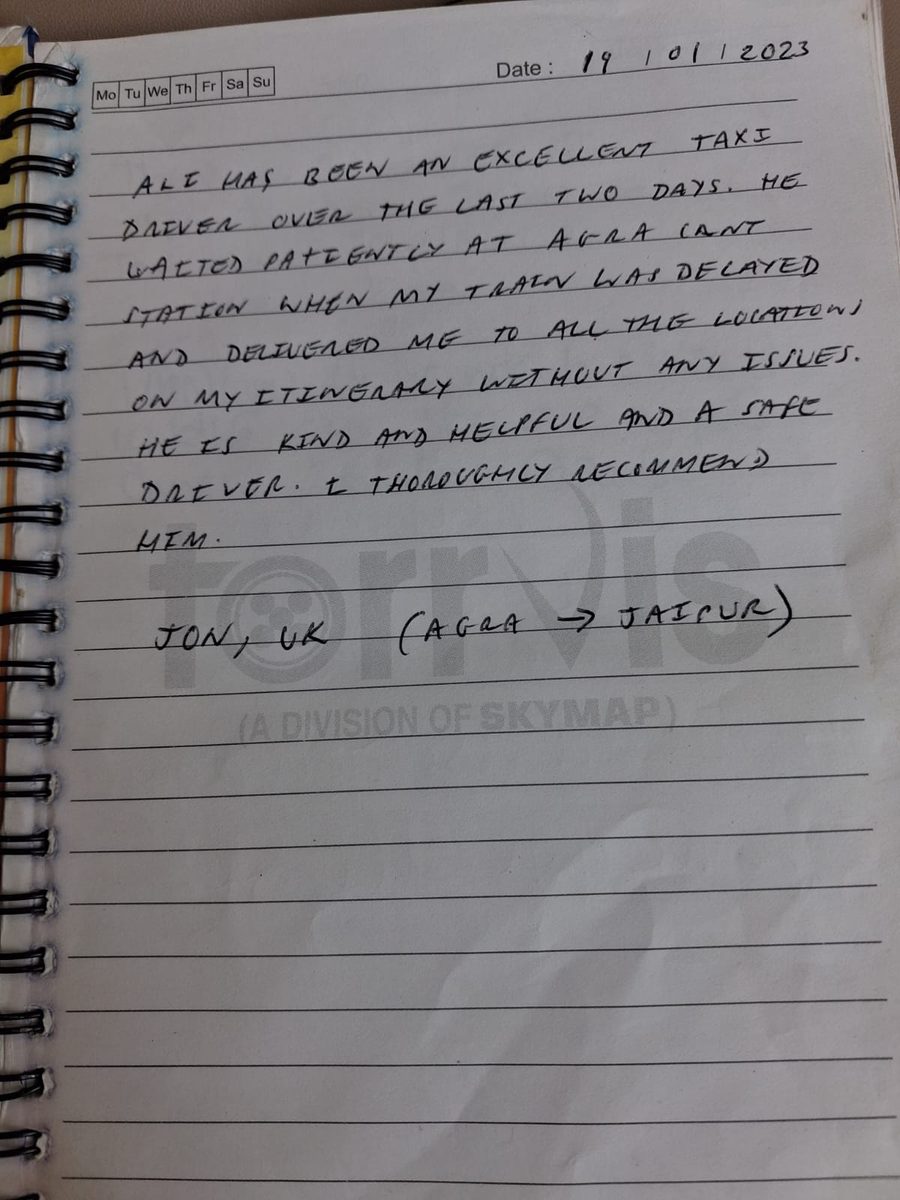 Mo Tu We Th Fr Sa Su
Date : 19 / 01 / 2023
ALI HAS BEEN AN EXCELLENT TAXI
DRIVER OVER THE LAST TWO DAYS. HE
WAITED PATIENTLY AT AGRA CANT
STATION WHEN MY TRAIN WAS DELAYED
AND DELIVERED ME TO ALL THE LOCATIONS
ON MY ITINERARY WITHOUT ANY ISSUES.
HE IS KIND AND HELPFUL AND A SAFE
DRIVER. I THOROUGHLY RECOMMEND
HIM.
JON, UK (AGRA → JAIPUR)
torrvis
(A DIVISION OF SKYMAP)